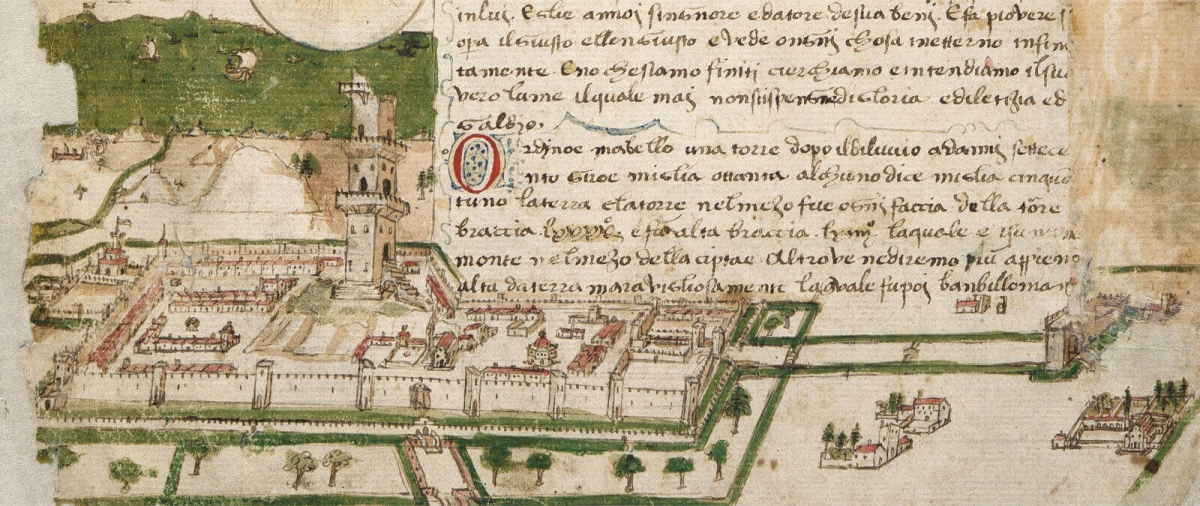 inlui. Eglie annoj singniore e datore desua benj. Efa piovere
opra ilgiusto ellengiusto evede ongni chosa inetterno infini
tamente. Eno chesiamo finiti cierchiamo e intendiamo ilsu
vero lume ilquale maj nonsispengnie digloria ediletizia ed
galdio.
Ordinoe mabello una torre dopo ildiluvio adannj settece
nto giroe miglia ottanta alchuno dice miglia cinqu
tuno laterra elatorre nelmezo fue ogni faccia della torre
braccia e fu alta braccia laquale e
monte nelmezo della ciptae. Altrove nediremo piu appieno
alta daterra maravigliosamente laquale fupoj banbillonia